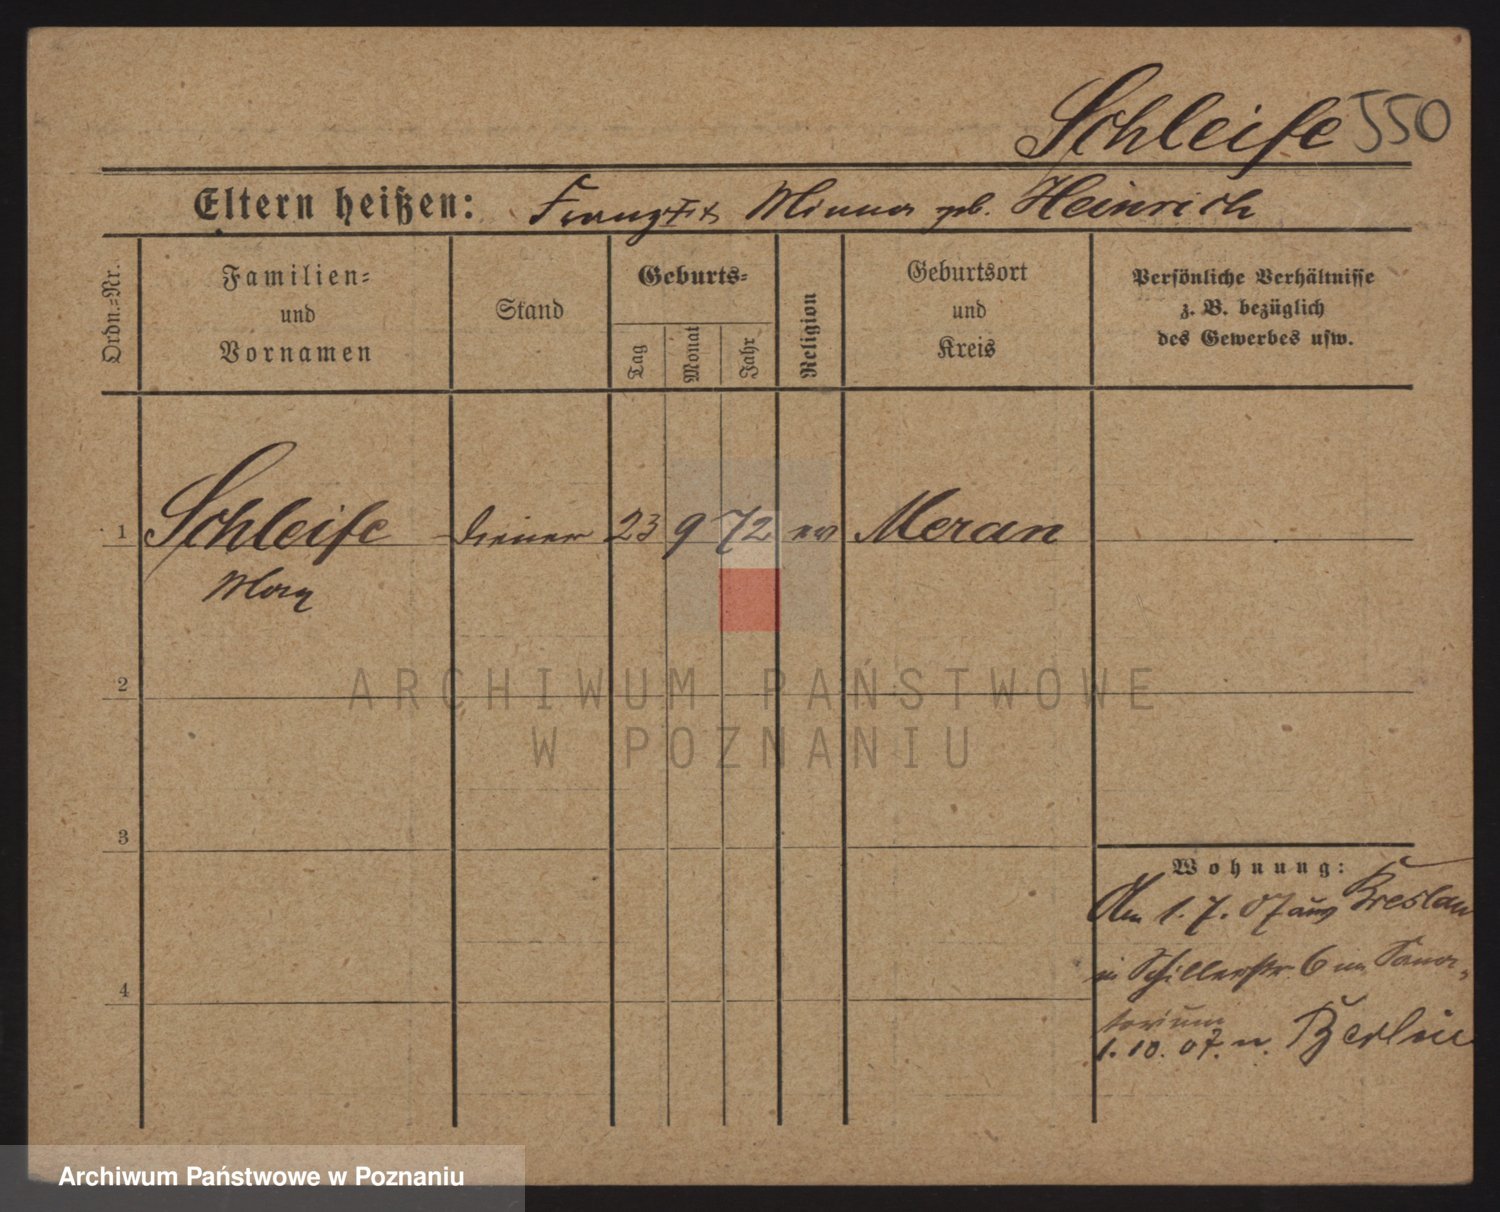 Schleife 550
Eltern heißen: Franz Minna geb. Heinrich
Ordn.=Nr.
Familien=
und
Vornamen
Stand
Geburts=
Tag
Monat
Jahr
Religion
Geburtsort
und
Kreis
Persönliche Verhältnisse
z. B. bezüglich
des Gewerbes usw.
1 Schleife Diener 23 9 72 ev Meran
Max
2
ARCHIWUM PAŃSTWOWE
W POZNANIU
3
Wohnung:
Am 1. 7. 07 aus Breslau
in Schillerstr. 6 im Sana-
4
torium
1. 10. 07. n. Berlin
Archiwum Państwowe w Poznaniu